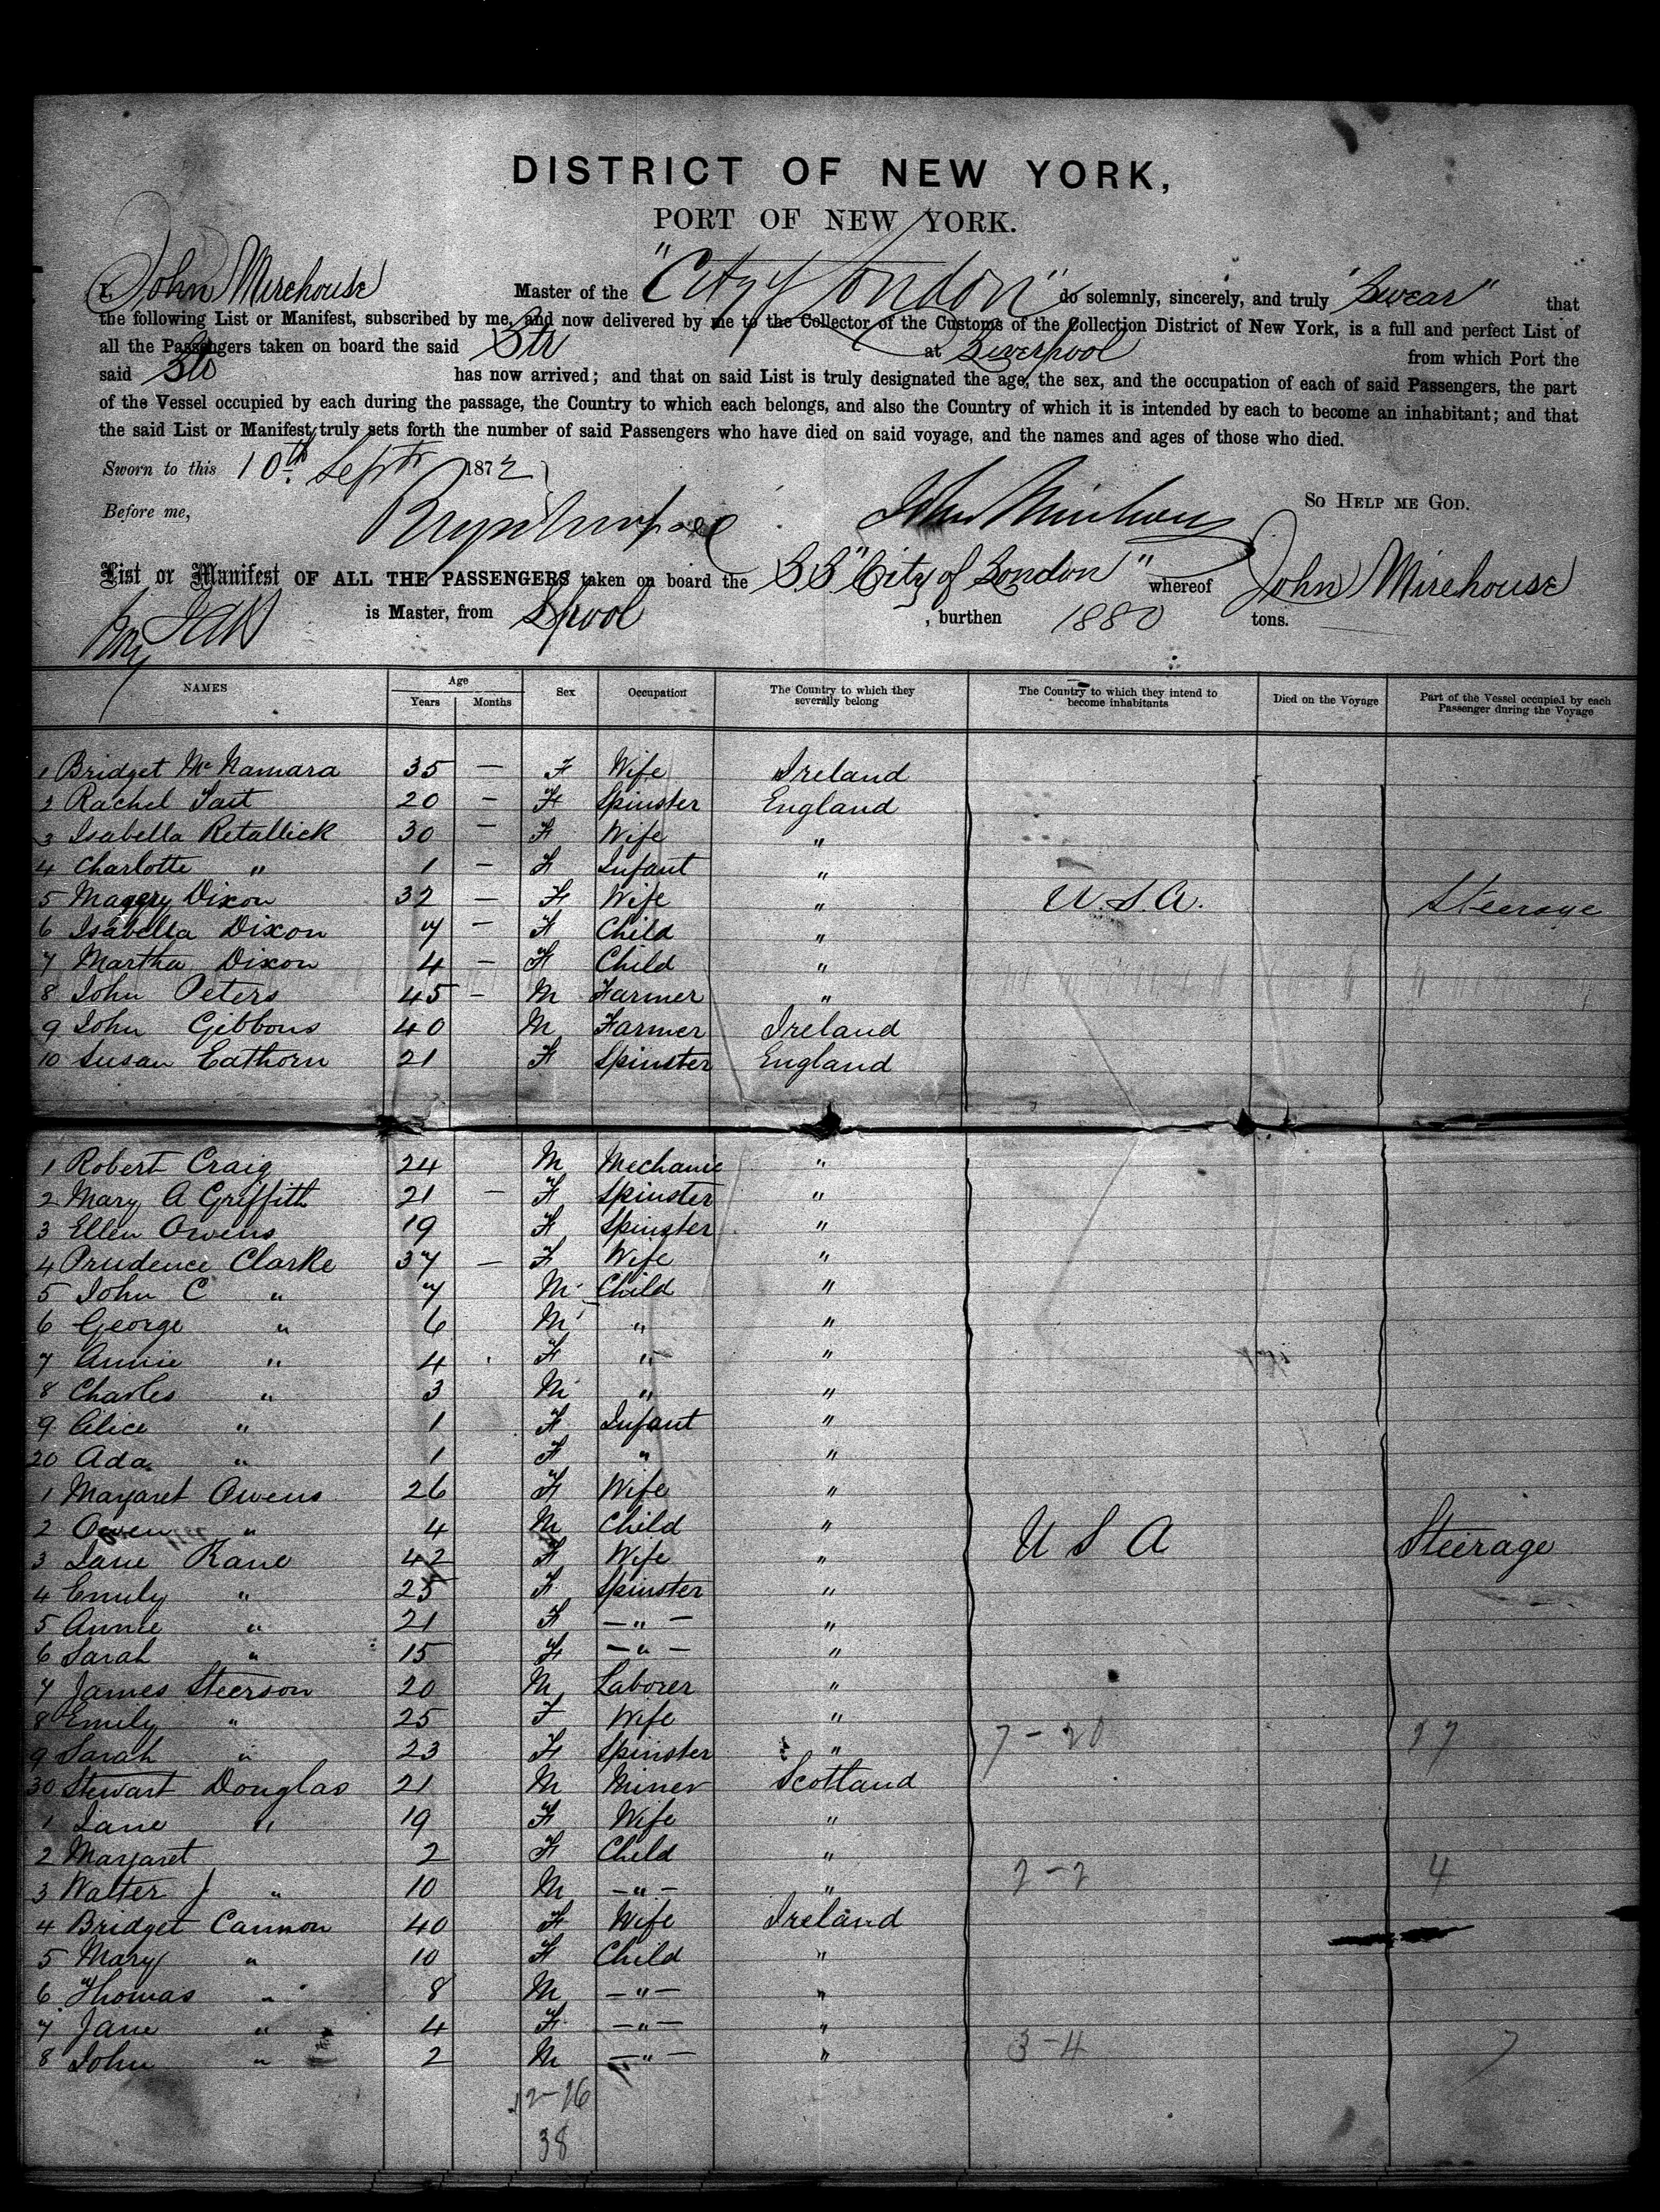 DISTRICT OF NEW YORK,
PORT OF NEW YORK.
I, John Mirehouse Master of the "City of London" do solemnly, sincerely, and truly "Swear" that
the following List or Manifest, subscribed by me, and now delivered by me to the Collector of the Customs of the Collection District of New York, is a full and perfect List of
all the Passengers taken on board the said Str at Liverpool from which Port the
said Str has now arrived; and that on said List is truly designated the age, the sex, and the occupation of each of said Passengers, the part
of the Vessel occupied by each during the passage, the Country to which each belongs, and also the Country of which it is intended by each to become an inhabitant; and that
the said List or Manifest truly sets forth the number of said Passengers who have died on said voyage, and the names and ages of those who died.
Sworn to this 10th Septr 1872
So HELP ME GOD.
Before me, John Mirehouse
List or Manifest OF ALL THE PASSENGERS taken on board the S.S. "City of London" whereof John Mirehouse
is Master, from Lpool , burthen 1880 tons.
NAMES Age Years Months Sex Occupation The Country to which they severally belong The Country to which they intend to become inhabitants Died on the Voyage Part of the Vessel occupied by each Passenger during the Voyage
1 Bridget McNamara 35 — F Wife Ireland
2 Rachel Tait 20 — F Spinster England
3 Isabella Retallick 30 — F Wife "
4 Charlotte " 1 — F Infant "
5 Magery Dixon 32 — F Wife " U.S.A. Steerage
6 Isabella Dixon 7 — F Child "
7 Martha Dixon 4 — F Child "
8 John Peters 45 — M Farmer "
9 John Gibbons 40 M Farmer Ireland
10 Susan Eathorn 21 F Spinster England
1 Robert Craig 24 M Mechanic "
2 Mary A Griffith 21 — F Spinster "
3 Ellen Owens 19 F Spinster "
4 Prudence Clarke 37 — F Wife "
5 John C " 7 M Child "
6 George " 6 M " "
7 Annie " 4 F " "
8 Charles " 3 M " "
9 Alice " 1 F Infant "
20 Ada " 1 F " "
1 Margaret Owens 26 F Wife "
2 Owen " 4 M Child " U S A Steerage
3 Jane Kane 42 F Wife "
4 Emily " 25 F Spinster "
5 Annie " 21 F — " — "
6 Sarah " 15 F — " — "
7 James Steerson 20 M Laborer "
8 Emily " 25 F Wife "
9 Sarah " 23 F Spinster " 7 - 20 17
30 Stewart Douglas 21 M Miner Scotland
1 Jane " 19 F Wife "
2 Margaret 2 F Child "
3 Walter J " 10 M — " — " 2 - 2 4
4 Bridget Cannon 40 F Wife Ireland
5 Mary " 10 F Child "
6 Thomas " 8 M — " — "
7 Jane " 4 F — " — "
8 John " 2 M — " — " 3 - 4 7
12-26
38